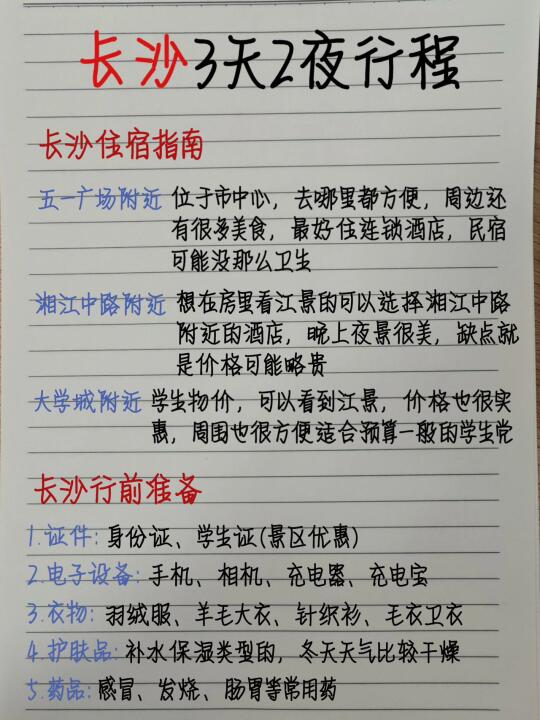 长沙3天2夜行程
长沙住宿指南
五一广场附近 位于市中心，去哪里都方便，周边还
有很多美食，最好住连锁酒店，民宿
可能没那么卫生
湘江中路附近 想在房里看江景的可以选择湘江中路
附近的酒店，晚上夜景很美，缺点就
是价格可能略贵
大学城附近 学生物价，可以看到江景，价格也很实
惠，周围也很方便适合预算一般的学生党
长沙行前准备
1.证件：身份证、学生证(景区优惠)
2.电子设备：手机、相机、充电器、充电宝
3.衣物：羽绒服、羊毛大衣、针织衫、毛衣卫衣
4.护肤品：补水保湿类型的，冬天天气比较干燥
5.药品：感冒、发烧、肠胃等常用药